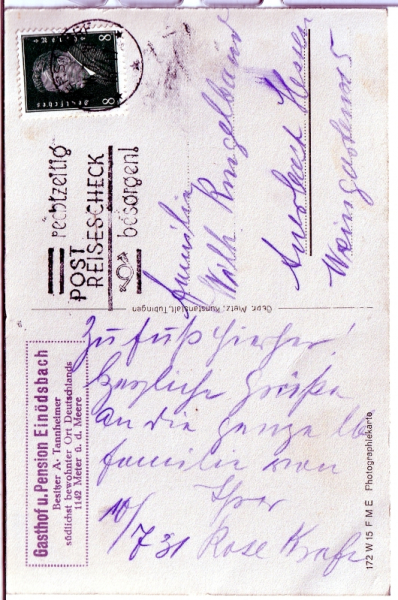 Zu Fuß hierher!
Herzliche Grüße
an die ganze lb
Familie von
Ihrer
10/7 31 Rose Kraft
Gasthof u. Pension Einödsbach
Besitzer A. Tannheimer
südlichst bewohnter Ort Deutschlands
1142 Meter ü. d. Meere
Rechtzeitig
POST
REISESCHECK
besorgen!
8 Deutsches 8
Familie
Wilh. Ringelbauer
Auerbach Hessen
Weingartenstr 5
Gebr. Metz, Kunstanstalt, Tübingen
172 W 15 F M E Photographiekarte